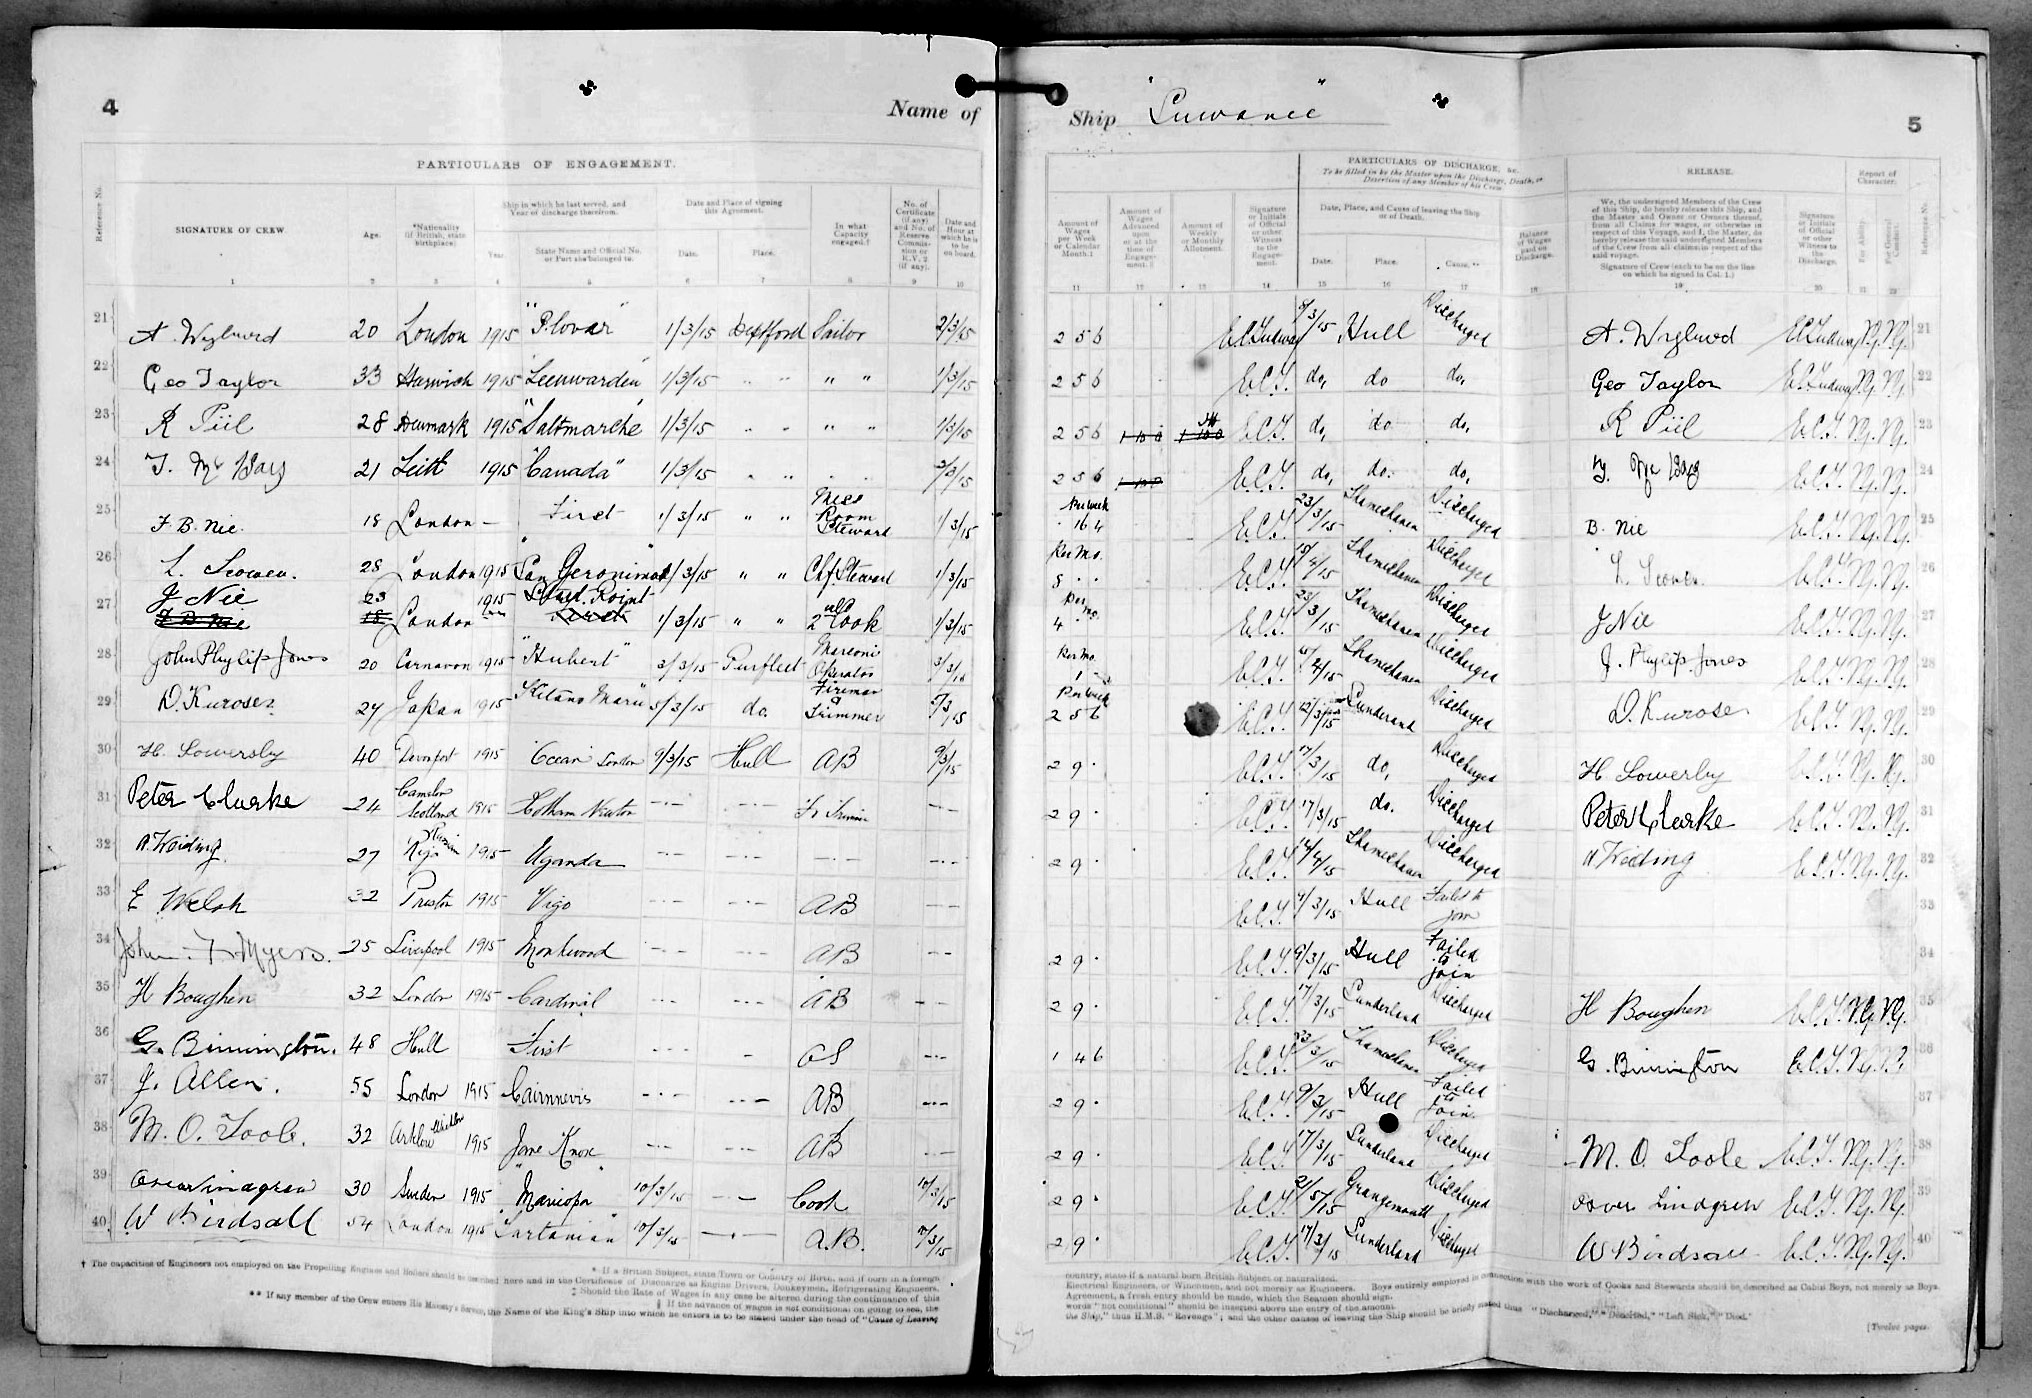 4
Name of
PARTICULARS OF ENGAGEMENT.
Reference No.
SIGNATURE OF CREW.
Age.
*Nationality (if British, state birthplace).
Ship in which he last served, and Year of discharge therefrom.
Year.
State Name and Official No. or Port she belonged to.
Date and Place of signing this Agreement.
Date.
Place.
In what Capacity engaged.†
No. of Certificate (if any) and No. of Reserve Commission or R.V.2 (if any).
Date and Hour at which he is to be on board.
1 2 3 4 5 6 7 8 9 10
21 A. 20 London 1915 "Plovar" 1/3/15 Deptford Sailor 2/3/15
22 Geo Taylor 33 Harwich 1915 "Leeuwarden" 1/3/15 " " " " 1/3/15
23 R Piil 28 Denmark 1915 "Saltmarche" 1/3/15 " " " " 1/3/15
24 21 Leith 1915 "Canada" 1/3/15 " " 2/3/15
25 F. B. Nie. 18 London – First 1/3/15 " " Mess Room Steward 1/3/15
26 L. 28 London 1915 "San Geronimo" 1/3/15 " " Chf Steward 1/3/15
27 J Nie 23 London 1915 Point 1/3/15 " " 2nd Cook 1/3/15
28 John Phylip Jones 20 Carnarvon 1915 "Hubert" 3/3/15 Purfleet Marconi Operator 3/3/15
29 D. Kurose 27 Japan 1915 "Kitano Maru" 5/3/15 do. Fireman & Trimmer 5/3/15
30 H. Lowersby 40 Devonport 1915 Ocean London 9/3/15 Hull AB 9/3/15
31 Peter Clarke 24 Camelon Scotland 1915 Hotham Newton -"- -"- -"-
32 27 Riga Russian 1915 Uganda -"- -"- -"- -"-
33 E Welsh 32 Preston 1915 Virgo -"- -"- AB -"-
34 John F. Myers. 25 Liverpool 1915 Monkwood -"- -"- AB -"-
35 H Boughen 32 London 1915 Cardinal -"- -"- AB -"-
36 G. Binnington. 48 Hull First -"- - OS -"-
37 J. Allen. 55 London 1915 Cairnnevis -"- -"- AB -"-
38 M. O. Toole. 32 Arklow Wicklow 1915 Jane Knox -"- -"- AB -"-
39 Oscar Lindgren 30 Sweden 1915 "Maricopa" 10/3/15 -"- Cook 10/3/15
40 W Birdsall 54 London 1915 "Tartanian" 10/3/15 -"- A.B. 11/3/15
† The capacities of Engineers not employed on the Propelling Engines and Boilers should be described here and in the Certificate of Discharge as Engine Drivers, Donkeymen, Refrigerating Engineers,
* If a British Subject, state Town or Country of Birth, and if born in a foreign
‡ Should the Rate of Wages in any case be altered during the continuance of this
§ If the advance of wages is not conditional on going to sea, the
** If any member of the Crew enters His Majesty's Service, the Name of the King's Ship into which he enters is to be stated under the head of "Cause of Leaving
Ship "Suwanee"
5
PARTICULARS OF DISCHARGE, &c.
To be filled in by the Master upon the Discharge, Death, or Desertion of any Member of his Crew
RELEASE.
Report of Character.
Amount of Wages per Week or Calendar Month.‡
Amount of Wages Advanced upon or at the time of Engagement.§
Amount of Weekly or Monthly Allotment.
Signature or Initials of Official or other Witness to the Engagement.
Date, Place, and Cause of leaving the Ship or of Death.
Date.
Place.
Cause.**
Balance of Wages paid on Discharge.
We, the undersigned Members of the Crew of this Ship, do hereby release this Ship, and the Master and Owner or Owners thereof, from all Claims for wages, or otherwise in respect of this Voyage, and I, the Master, do hereby release the said undersigned Members of the Crew from all claims in respect of the said voyage.
Signature of Crew (each to be on the line on which he signed in Col. 1.)
Signature or Initials of Official or other Witness to the Discharge.
For Ability.
For General Conduct.
Reference No.
11 12 13 14 15 16 17 18 19 20 21 22
2 5 6 8/3/15 Hull Discharged A. V.G. V.G. 21
2 5 6 E.C.T. do, do do, Geo Taylor V.G. V.G. 22
2 5 6 E.C.T. do, do do, R Piil E.C.T. V.G. V.G. 23
2 5 6 E.C.T. do, do. do, E.C.T. V.G. V.G. 24
Per week 16 4 E.C.T. 23/3/15 Thameshaven Discharged B. Nie E.C.T. V.G. V.G. 25
Per Mo. 8 . . E.C.T. 15/4/15 Thameshaven Discharged L. E.C.T. V.G. V.G. 26
Per mo. 4 E.C.T. 23/3/15 Thameshaven Discharged J Nie E.C.T. V.G. V.G. 27
Per Mo. E.C.T. 4/15 Thameshaven Discharged J. Phylip Jones E.C.T. V.G. V.G. 28
Per week 2 5 6 E.C.T. 3/15 Sunderland Discharged D. Kurose E.C.T. V.G. V.G. 29
2 9 . E.C.T. 17/3/15 do, Discharged H Lowerby E.C.T. V.G. V.G. 30
2 9 . E.C.T. 17/3/15 do. Discharged Peter Clarke E.C.T. V.G. V.G. 31
2 9 . E.C.T. 4/15 Thameshaven Discharged E.C.T. V.G. V.G. 32
E.C.T. 9/3/15 Hull Failed to join 33
2 9 . E.C.T. 9/3/15 Hull Failed to join 34
2 9 . E.C.T. 17/3/15 Sunderland Discharged H Boughen E.C.T. V.G. V.G. 35
1 4 6 E.C.T. 23/3/15 Thameshaven Discharged G. Binnington E.C.T. V.G. 36
2 9 . E.C.T. 9/3/15 Hull Failed to Join. 37
2 9 . E.C.T. 17/3/15 Sunderland Discharged M. O. Toole E.C.T. V.G. V.G. 38
2 9 . E.C.T. 21/5/15 Grangemouth Discharged Oscar Lindgren E.C.T. V.G. V.G. 39
2 9 . E.C.T. 17/3/15 Sunderland Discharged W Birdsall E.C.T. V.G. V.G. 40
country, state if a natural born British Subject or naturalized.
Electrical Engineers, or Winchmen, and not merely as Engineers. Boys entirely employed in connection with the work of Cooks and Stewards should be described as Cabin Boys, not merely as Boys.
Agreement, a fresh entry should be made, which the Seaman should sign.
words "not conditional" should be inserted above the entry of the amount.
the Ship," thus H.M.S. "Revenge"; and the other causes of leaving the Ship should be briefly stated thus "Discharged," "Deserted," "Left Sick," "Died."
[Twelve pages.